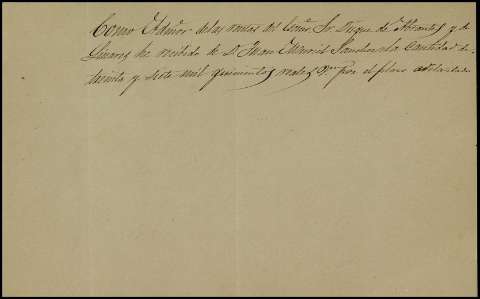 Como Admor de las rentas del Excmo. Sr. Duque de Abrantes y de
Linares he recibido de D. Juan Manuel Sanchez la cantidad de
treinta y siete mil quinientos reales Vn. por el plazo adelantado